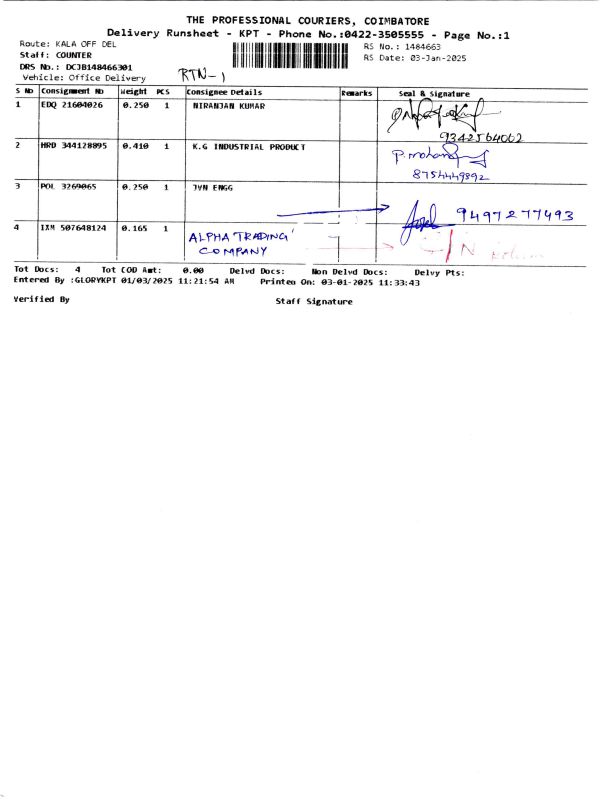 THE PROFESSIONAL COURIERS, COIMBATORE
Delivery Runsheet - KPT - Phone No.:0422-3505555 - Page No.:1
Route: KALA OFF DEL
RS No.: 1484663
Staff: COUNTER
RS Date: 03-Jan-2025
DRS No.: DCJB148466301
Vehicle: Office Delivery
RTN-1
S No Consignment No Weight PCS Consignee Details Remarks Seal & Signature
1 EDQ 21604026 0.250 1 NIRANJAN KUMAR
9342564062
2 HRD 344128895 0.410 1 K.G INDUSTRIAL PRODUCT P.mohan
8754449892
3 POL 3269065 0.250 1 JVN ENGG
9497277493
4 IXM 507648124 0.165 1 ALPHA TRADING
COMPANY
Tot Docs: 4 Tot COD Amt: 0.00 Delvd Docs: Non Delvd Docs: Delvy Pts:
Entered By :GLORYKPT 01/03/2025 11:21:54 AM Printed On: 03-01-2025 11:33:43
Verified By Staff Signature